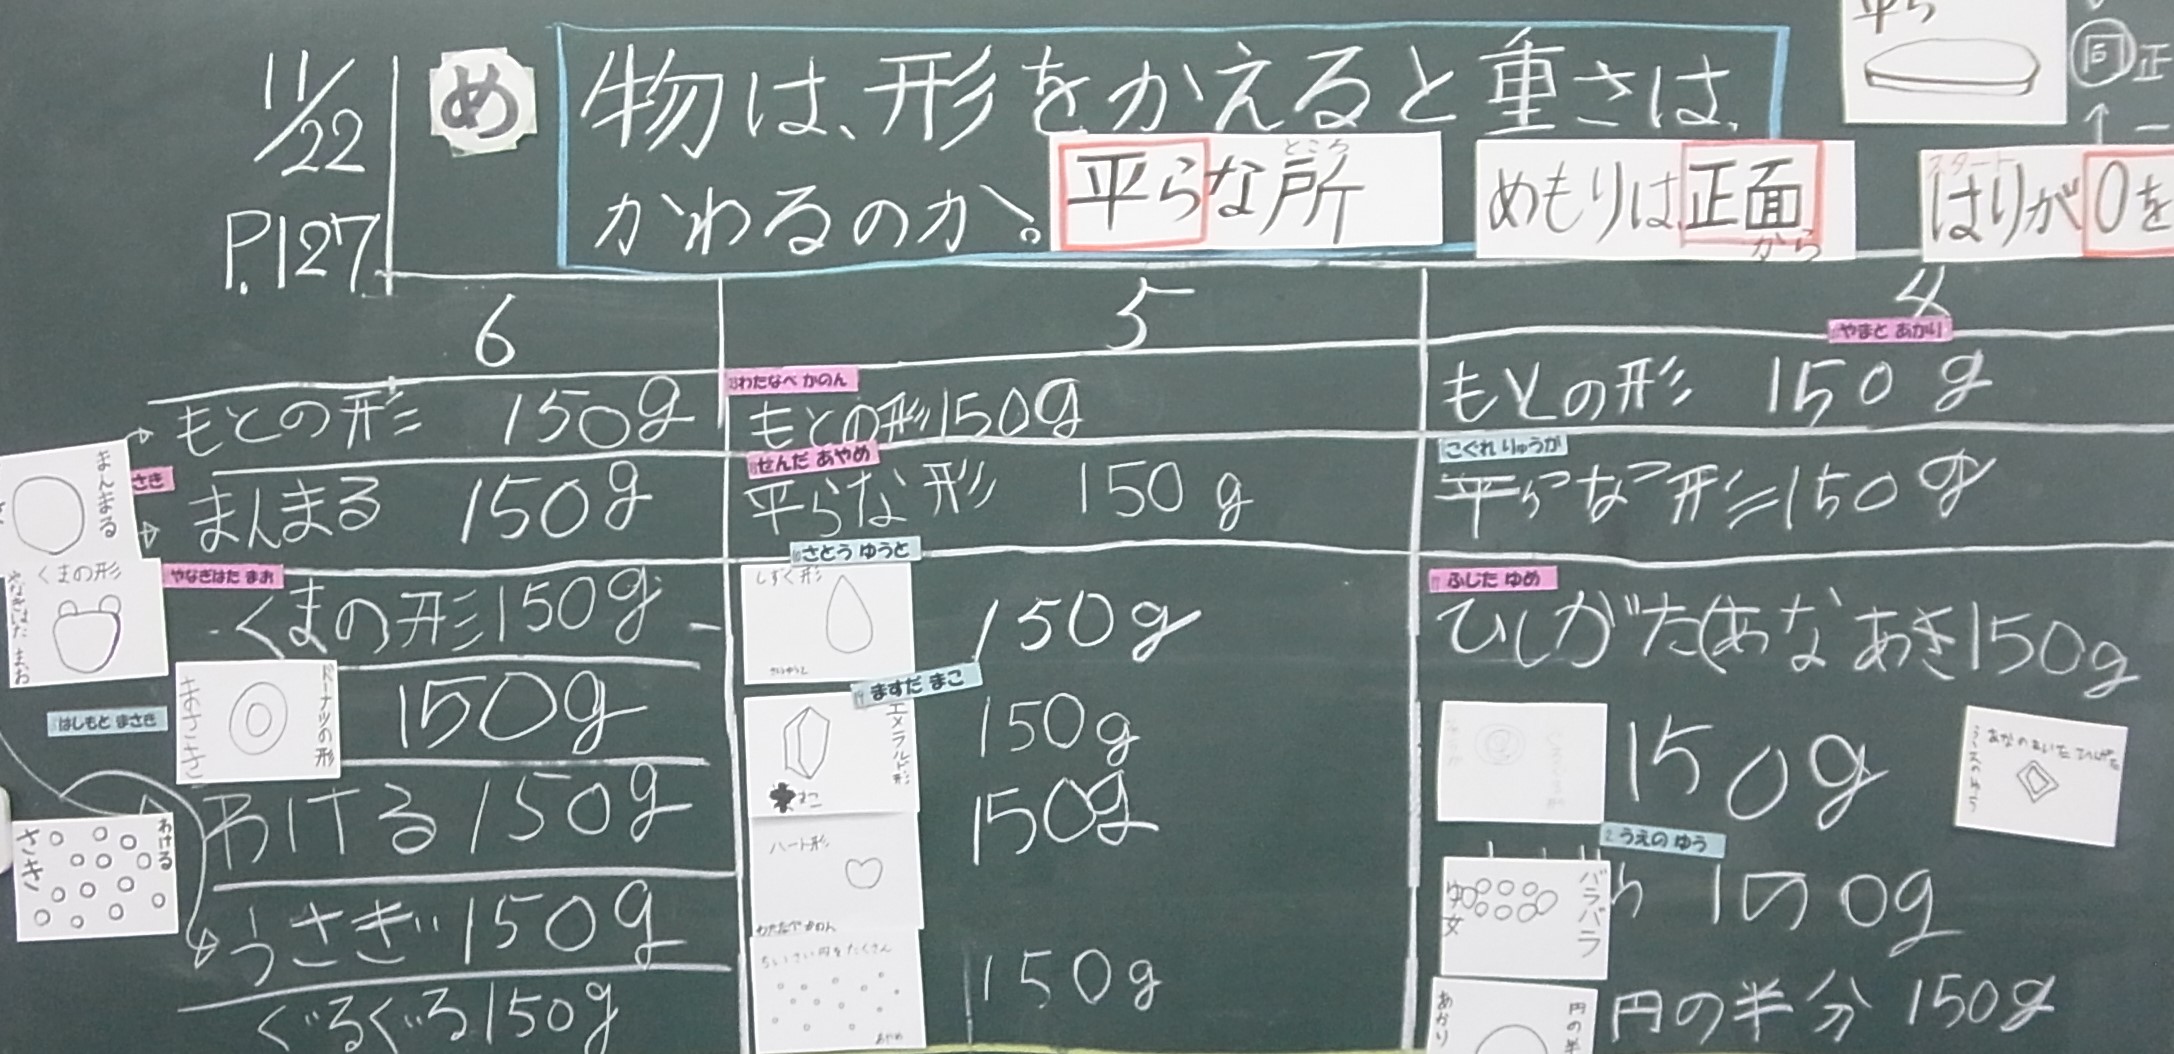 11/22
P.127
め
物は、形をかえると重さは、
かわるのか。
平らな所
ところ
めもりは正面
から
スタート
はりが0を
平ら
同 正
6
もとの形 150g
まんまる 150g
くまの形 150g
150g
わける 150g
うさぎ 150g
ぐるぐる 150g
まんまる
さき
くまの形
やなぎはた まお
やなぎはた まお
はしもと まさき
ドーナツの形
まさき
わける
さき
5
わたなべ かのん
もとの形 150g
せんだ あやめ
平らな形 150g
さとう ゆうと
しずく形
150g
ますだ まこ
エメラルド形
まこ
150g
ハート形
わたなべ かのん
150g
ちいさい円をたくさん
あやめ
150g
4
やまと あかり
もとの形 150g
こぐれ りゅうが
平らな形 150g
ふじた ゆめ
ひしがた(あなあき 150g
150g
うえの ゆう
バラバラ
ゆ女
円の半分 150g
円の半
あかり